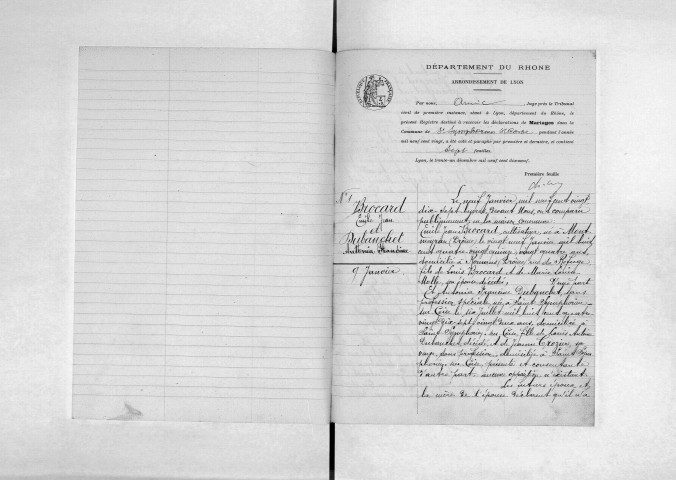 DÉPARTEMENT DU RHONE
ARRONDISSEMENT DE LYON
RÉPUBLIQUE FRANÇAISE
Par nous, Juge près le Tribunal
civil de première instance, séant à Lyon, département du Rhône, le
présent Registre destiné à recevoir les déclarations de Mariages dans la
Commune de St Symphorien pendant l'année
mil neuf cent vingt, a été coté et paraphé par première et dernière, et contient
Sept feuilles
Lyon, le trente-un décembre mil neuf cent dixneuf.
Première feuille
N° 1
Brocard
Emile Jean
et
Dubanchet
Antonia Francine
9 Janvier
Le neuf Janvier mil neuf cent vingt
dix-sept heures, devant Nous, ont comparu
publiquement en la maison commune
Emile Jean Brocard, cultivateur, né à Mont
(Drôme) le vingt neuf Janvier mil huit
cent quatre vingt quinze, vingt quatre ans,
domicilié à Romans, Drôme, rue du Refuge
fils de Louis Brocard et de Marie
Molle, décédés, D'une part
Et Antonia Francine Dubanchet, sans
profession spéciale, née à Saint Symphorien
sur Coise le six juillet mil huit cent quatre
vingt dix sept, vingt deux ans, domiciliée à
Saint Symphorien sur Coise, fille de Louis Antoine
Dubanchet décédé, et de Jeanne sa
veuve, sans profession, domiciliée à Saint Sym
phorien sur Coise, présente et consentante
D'autre part. aucune opposition n'existant.
Les futurs époux et
la mère de l'épouse déclarent qu'il n'a